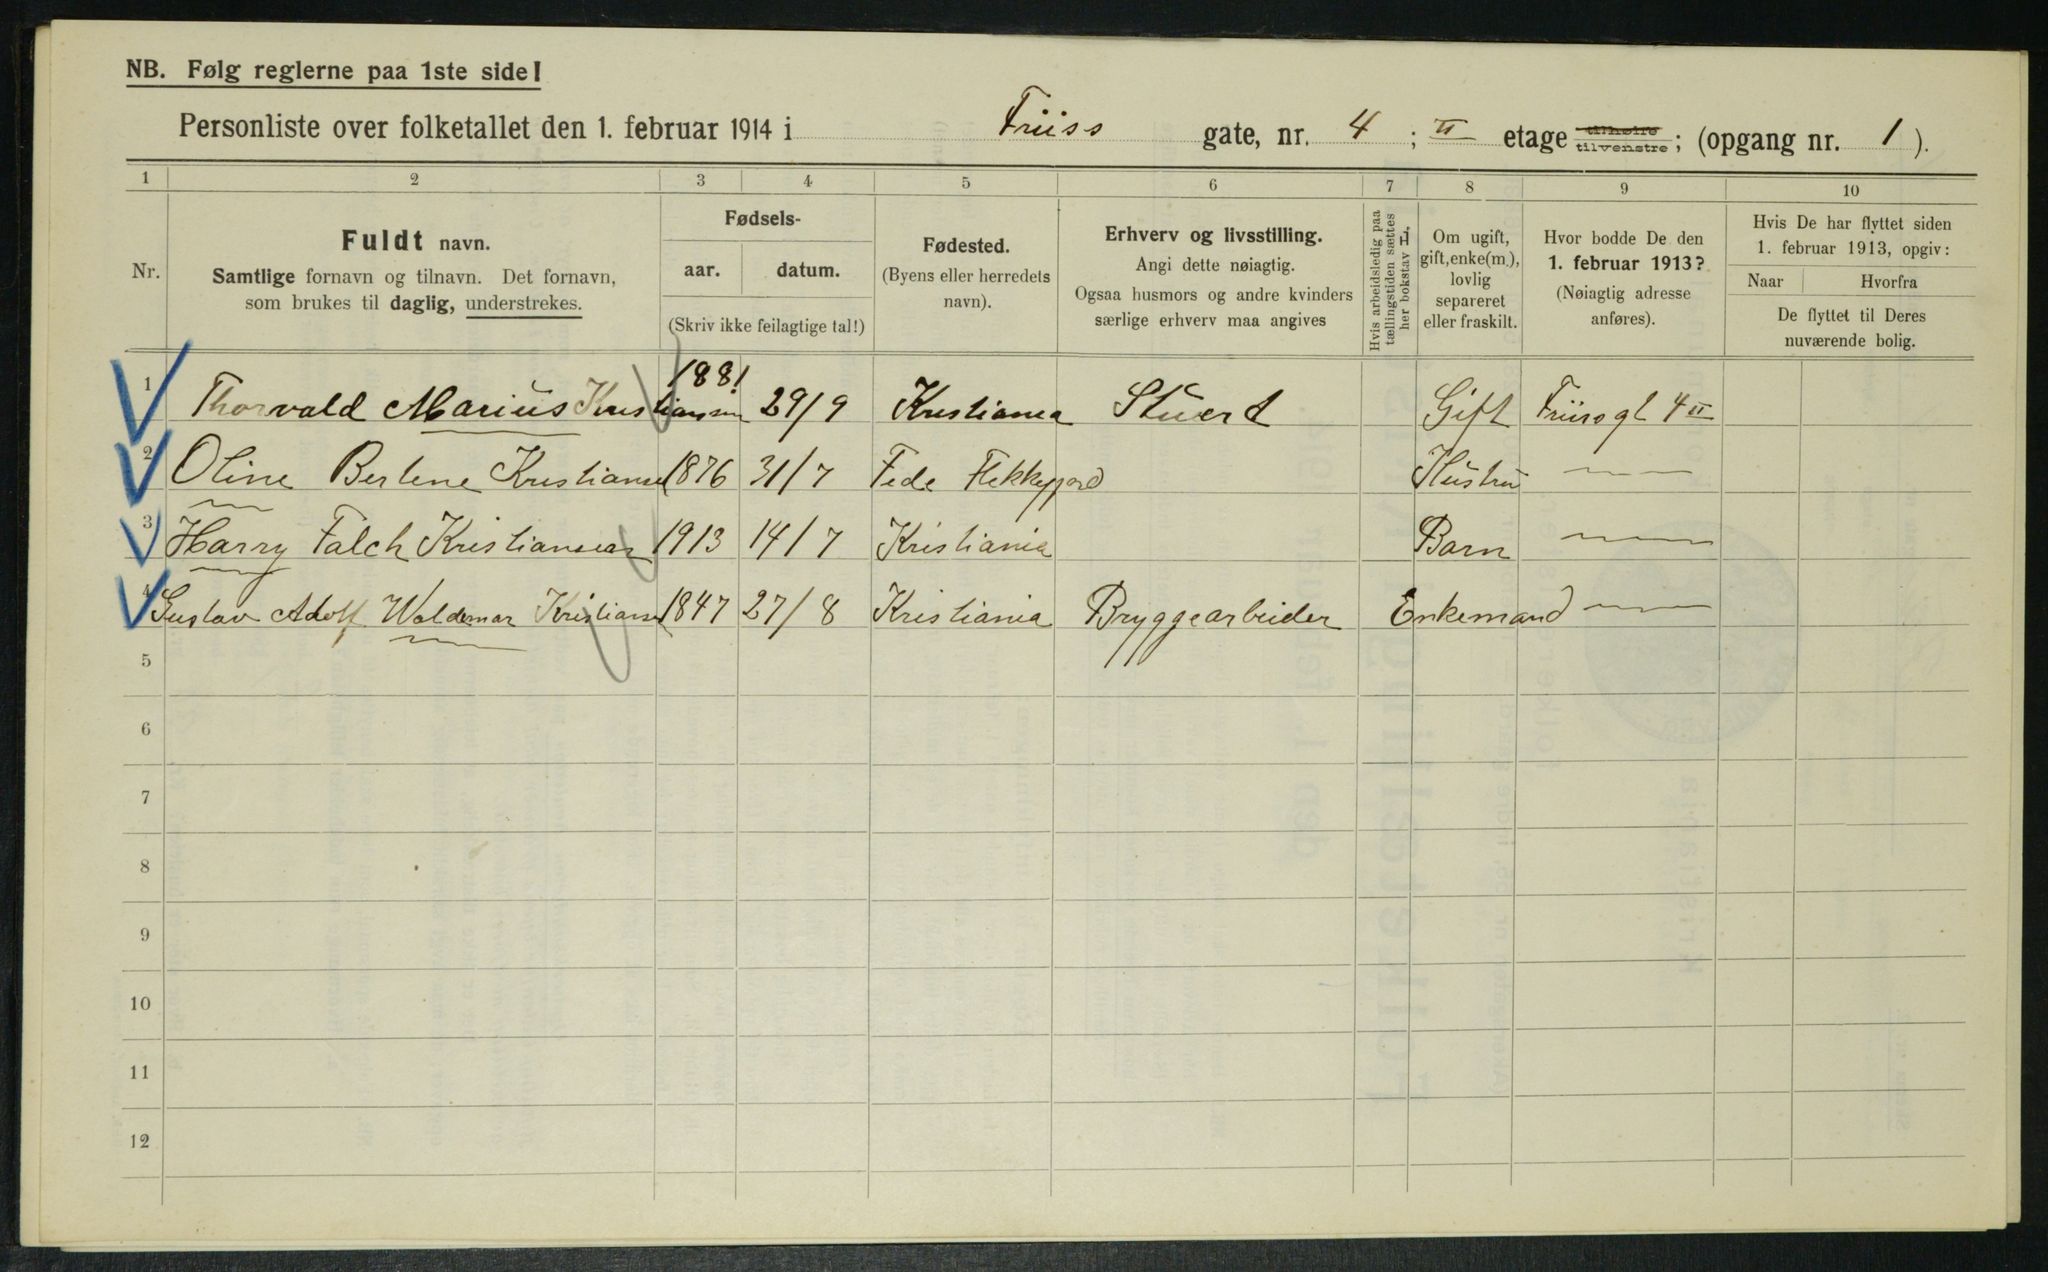 NB. Følg reglerne paa 1ste side!
Personliste over folketallet den 1. februar 1914 i Friiss gate, nr. 4 ; II etage tilhøire tilvenstre ; (opgang nr. 1 ).
1 2 3 4 5 6 7 8 9 10
Nr.
Fuldt navn.
Samtlige fornavn og tilnavn. Det fornavn,
som brukes til daglig, understrekes.
Fødsels-
aar. datum.
(Skriv ikke feilagtige tal!)
Fødested.
(Byens eller herredets
navn).
Erhverv og livsstilling.
Angi dette nøiagtig.
Ogsaa husmors og andre kvinders
særlige erhverv maa angives
Hvis arbeidsledig paa
tællingstiden sættes
her bokstav L.
Om ugift,
gift, enke(m.),
lovlig
separeret
eller fraskilt.
Hvor bodde De den
1. februar 1913?
(Nøiagtig adresse
anføres).
Hvis De har flyttet siden
1. februar 1913, opgiv:
Naar Hvorfra
De flyttet til Deres
nuværende bolig.
1 Thorvald Marius Kristiansen 1881 29/9 Kristiania Stuert Gift Friisgt 4 II
2 Oline Berlene Kristiansen 1876 31/7 Fede Flekkefjord Hustru — —
3 Harry Falch Kristiansen 1913 14/7 Kristiania Barn — —
4 Gustav Adolf Waldemar Kristiansen 1847 27/8 Kristiania Bryggearbeider Enkemand — —
5
6
7
8
9
10
11
12